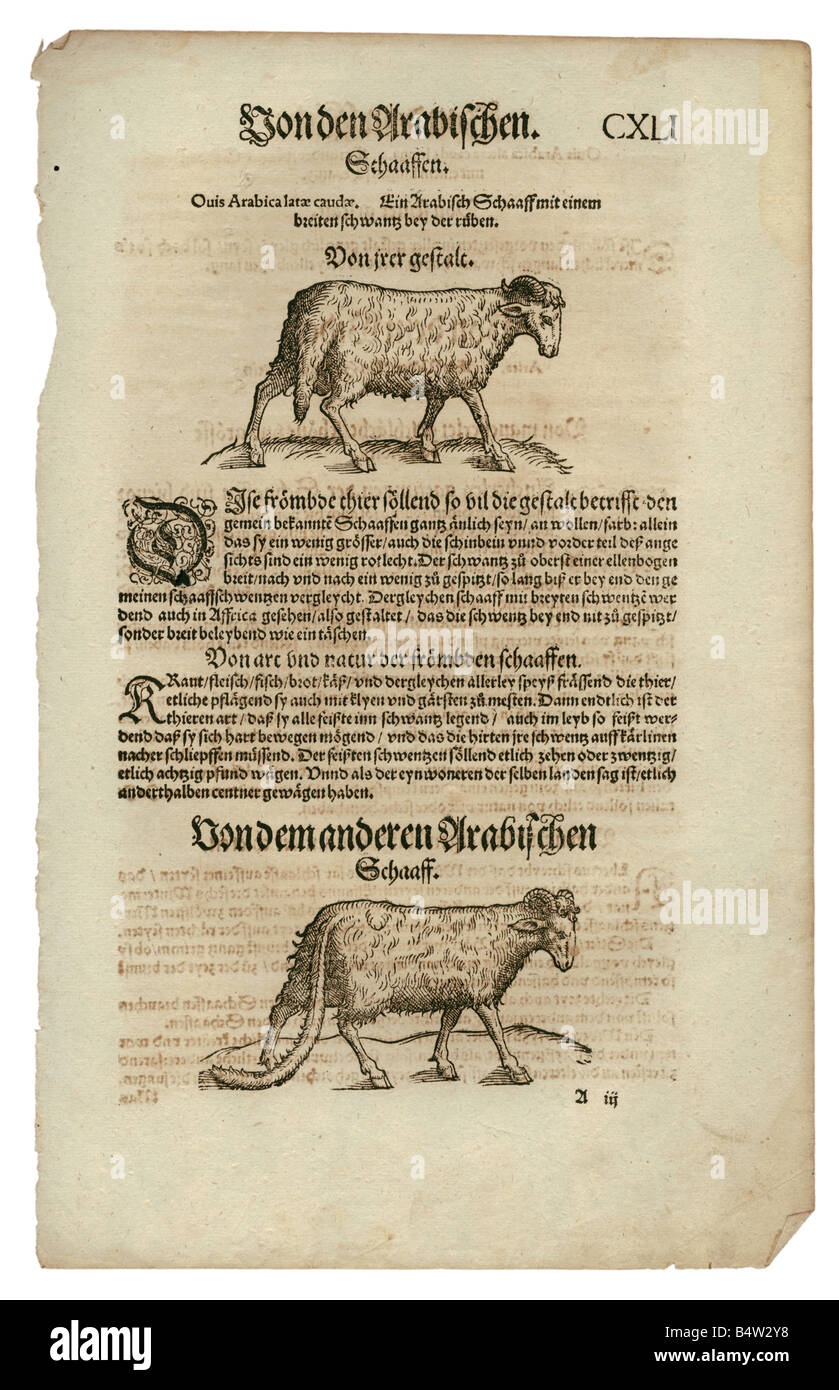 Von den Arabischen. CXLI
Schaaffen.
Ouis Arabica latæ caudæ. Ein Arabisch Schaaff mit einem
breiten schwantz bey der rüben.
Von jrer gestalt.
DJse frömbde thier söllend so vil die gestalt betrifft den
gemein bekanntē Schaaffen gantz änlich seyn/ an wollen/ farb: allein
das sy ein wenig grösser/ auch die schinbein vnnd vorder teil deß ange
sichts sind ein wenig rotlecht. Der schwantz zů oberst einer ellenbogen
breit/ nach vnd nach ein wenig zů gespitzt/ so lang biß er bey end den ge
meinen schaaffschwentzen vergleycht. Dergleychen schaaff mit breyten schwentzē wer
dend auch in Affrica gesehen/ also gestaltet/ das die schwentz bey end nit zů gespitzt/
sonder breit beleybend wie ein täschen.
Von art vnd natur der frömbden schaaffen.
KRaut/ fleisch/ fisch/ brot/ käß/ vnd dergleychen allerley speyß frässend die thier/
etliche pflägend sy auch mit klyen vnd gärsten zů mesten. Dann endtlich ist der
thieren art/ daß sy alle feißte inn schwantz legend/ auch im leyb so feißt wer-
dend daß sy sich hart bewegen mögend/ vnd das die hirten jre schwentz auff kärlinen
nacher schliepffen müssend. Der feißten schwentzen söllend etlich zehen oder zwentzig/
etlich achtzig pfund wägen. Vnnd als der eynwoneren der selben landen sag ist/ etlich
anderthalben centner gewägen haben.
Von dem anderen Arabischen
Schaaff.
A iij
alamy
Image ID: B4W2Y8
www.alamy.com